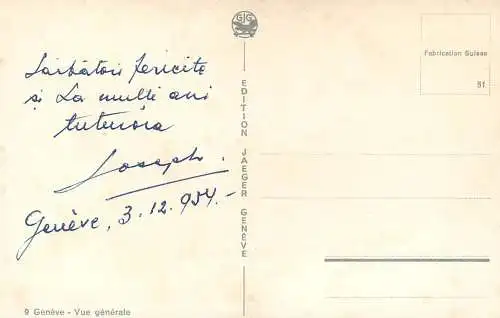 GJG
Sărbători fericite
și La mulți ani
tuturora
Joseph.
Genève, 3.12.954.-
EDITION JAEGER GENÈVE
Fabrication Suisse
51
9 Genève - Vue générale